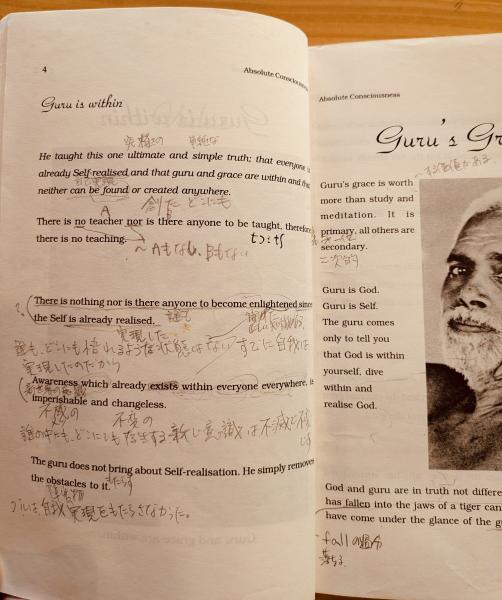 4
Absolute Consciousness
Guru is within
究極の 単純な
He taught this one ultimate and simple truth; that everyone is
already Self-realised and that guru and grace are within and that
自己実現
neither can be found or created anywhere.
A
創造 どこにも
There is no teacher nor is there anyone to be taught, therefore
there is no teaching.
〜Aもなく、Bもない
There is nothing nor is there anyone to become enlightened since
the Self is already realised.
誰も
実現した
誰も、どこにも悟れるような状態はない すでに自我は
実現したのだから
Awareness which already exists within everyone everywhere, is
imperishable and changeless.
不滅の 不変の
誰の中にも、どこにでも存在する新しい意識は不滅で不変
The guru does not bring about Self-realisation. He simply removes
the obstacles to it.
もたらす
障害物
グルは、自我実現をもたらさなかった。
Absolute Consciousness
Guru's
〜する価値がある
Guru's grace is worth
more than study and
meditation. It is
primary, all others are
secondary.
二次的
Guru is God.
Guru is Self.
The guru comes
only to tell you
that God is within
yourself, dive
within and
realise God.
God and guru are in truth not
has fallen into the jaws of a tiger
have come under the glance of the
fallの過分
落ちる